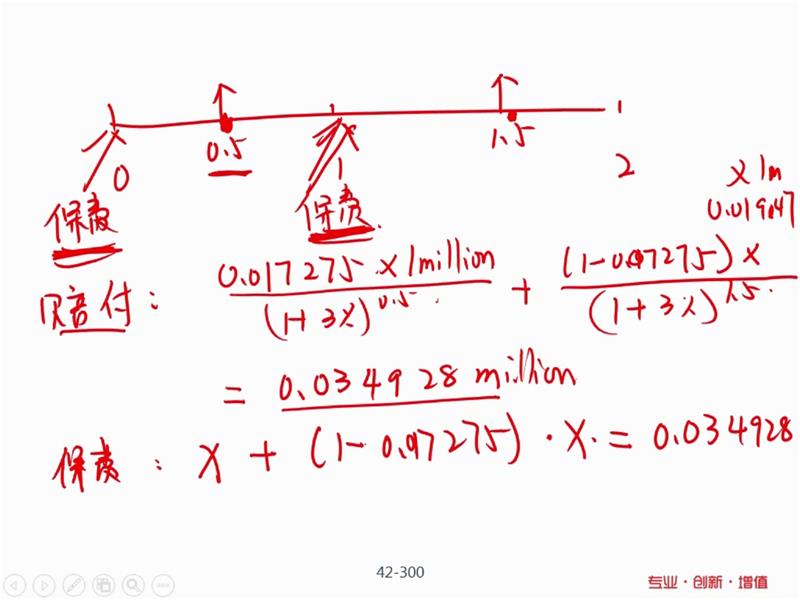 0 0.5 1 1.5 2
保费 保费
× 1m
0.019047
赔付: 0.017275 × 1million / (1+3%)^0.5 + (1-0.017275) × / (1+3%)^1.5
= 0.034928 million
保费: X + (1-0.017275) · X = 0.034928
42-300
专业·创新·增值